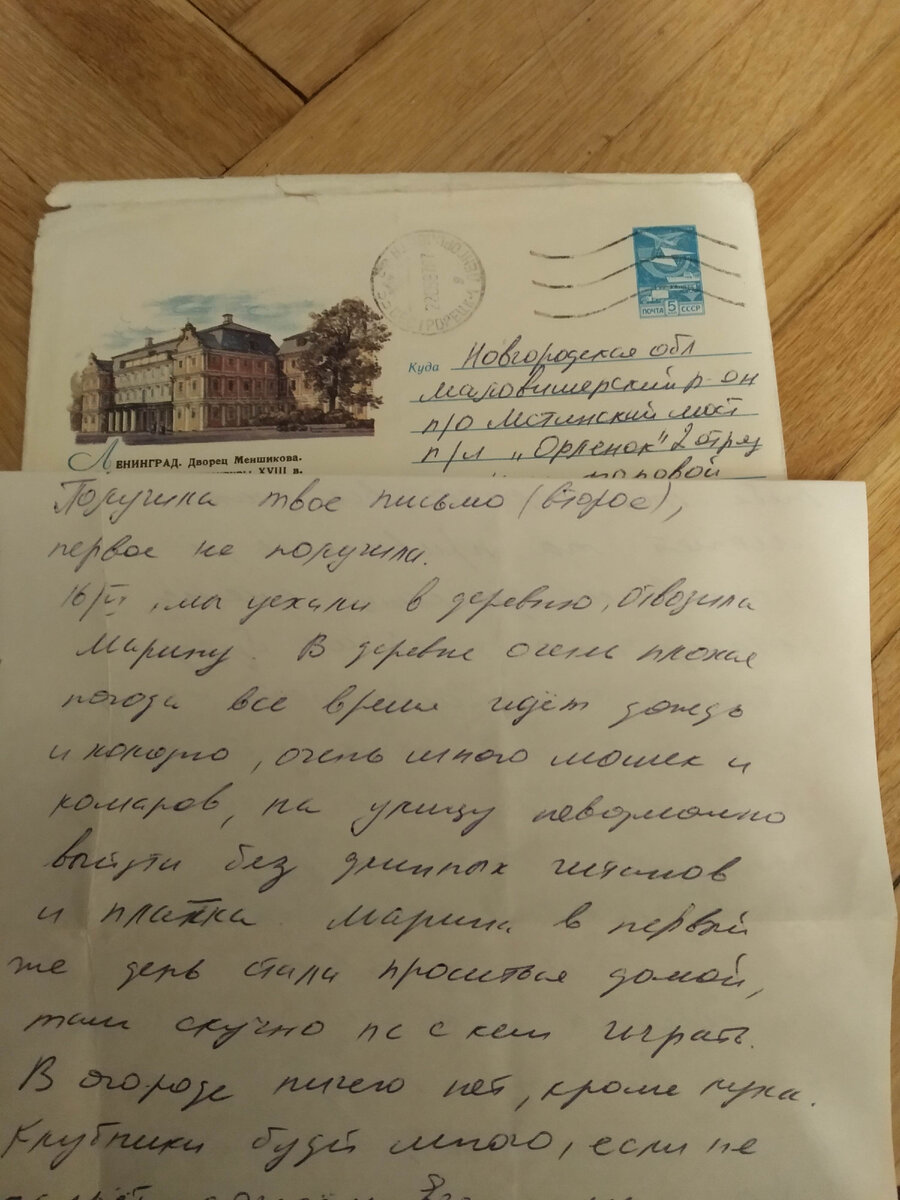 ПОЧТА 5 СССР
Куда Новгородская обл
маловишерский р-он
п/о Мстинский мост
п/л „Орленок" 2 отряд
ЛЕНИНГРАД. Дворец Меншикова.
XVIII в.
Получила твое письмо (второе),
первое не получила.
16/VI, мы уехали в деревню, отвозила
Марину. В деревне очень плохая
погода все время идёт дождь
и холодно, очень много мошек и
комаров, на улицу невозможно
выйти без длинных штанов
и платка. Марина в первый
же день стала проситься домой,
там скучно не с кем играть.
В огороде ничего нет, кроме лука.
Клубники будет много, если не